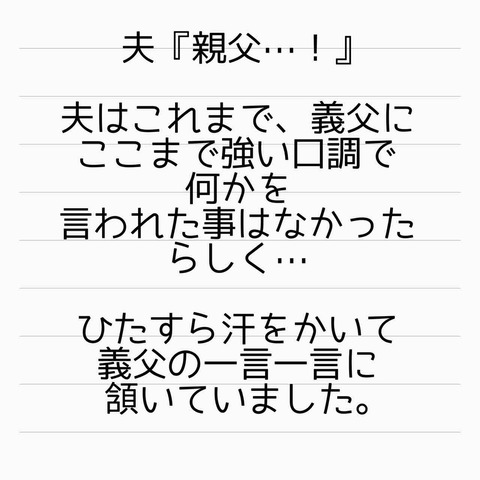 夫『親父…！』
夫はこれまで、義父に
ここまで強い口調で
何かを
言われた事はなかった
らしく…
ひたすら汗をかいて
義父の一言一言に
頷いていました。